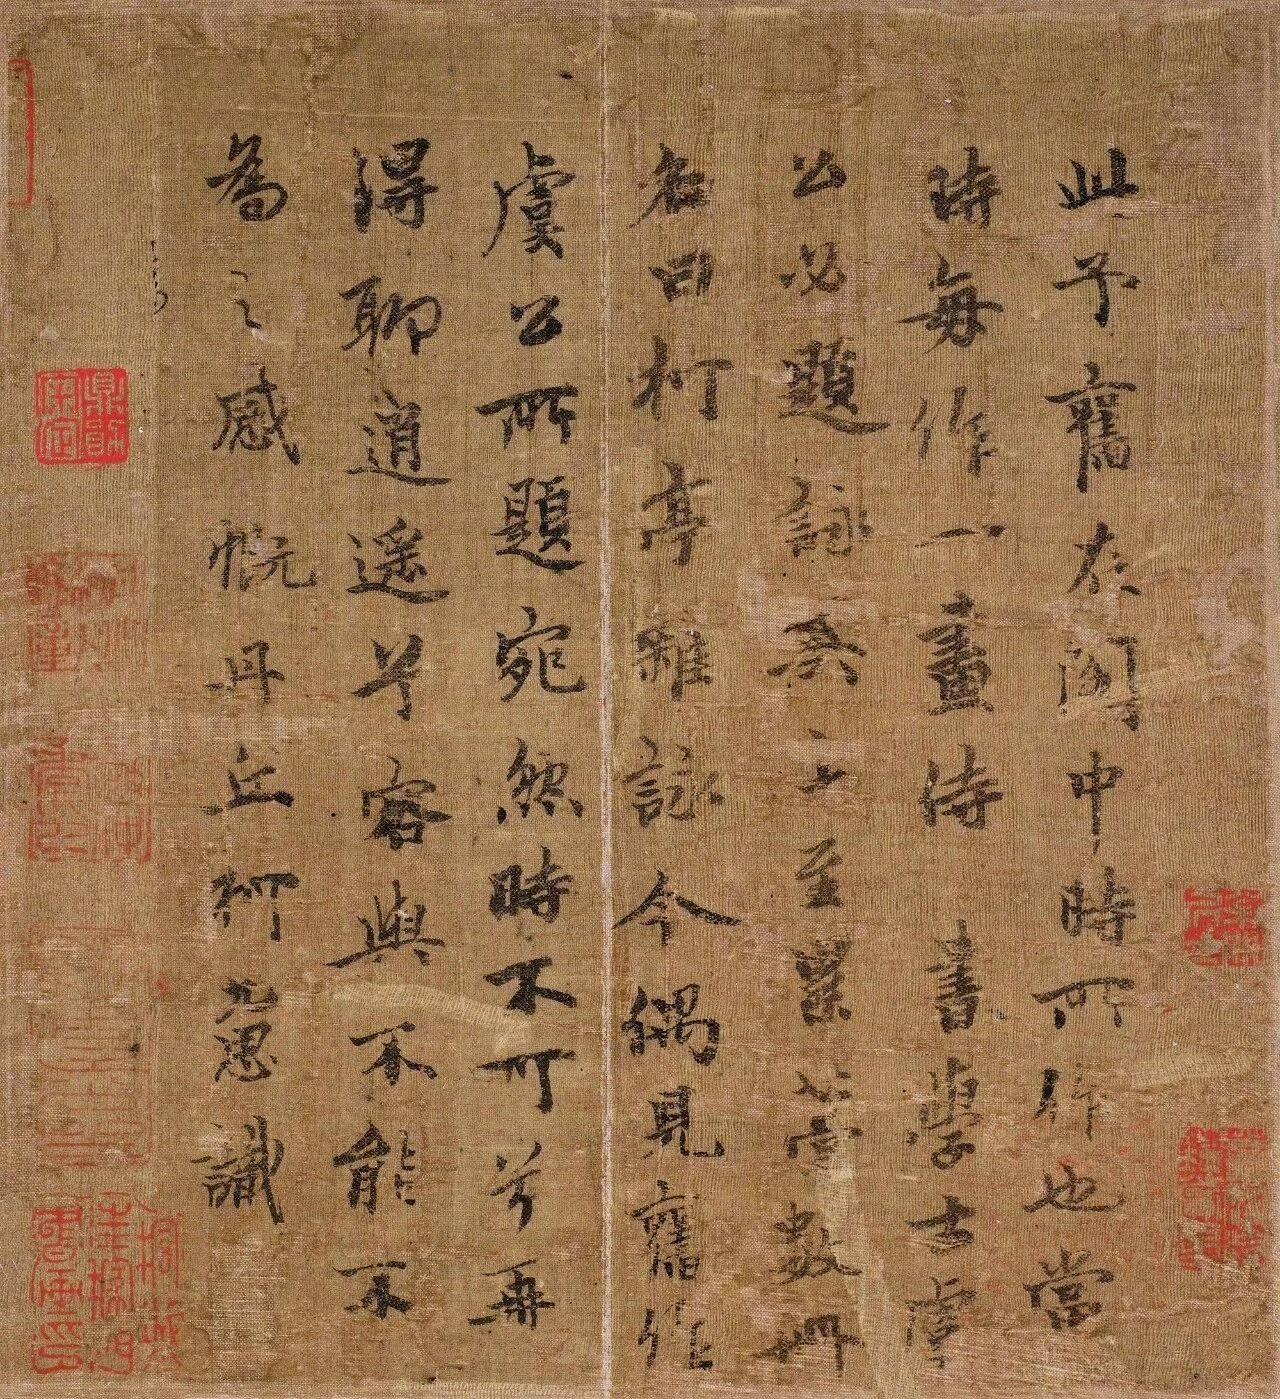 此予舊在閣中時所作也當
時每作一畫侍書學士虞
公必題詠其上至數冊
名曰柯亭雜詠今偶見舊作
虞公所題宛然時不可兮再
得聊逍遙兮容與不能不
為之感慨丹丘柯九思識